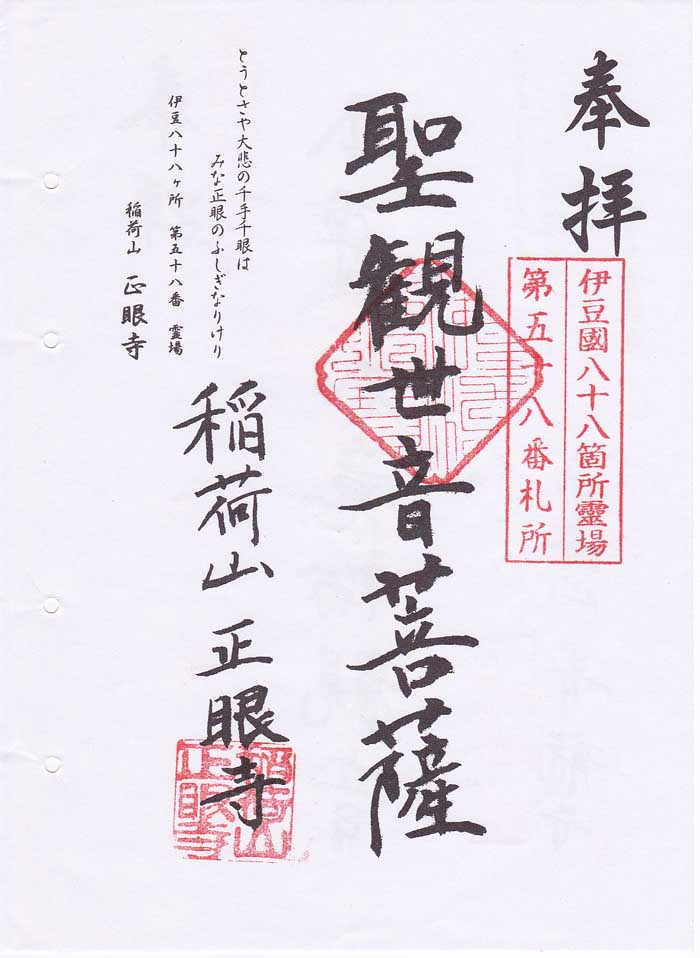 奉拝
伊豆國八十八箇所靈場
第五十八番札所
聖観世音菩薩
とうとさや大悲の千手千眼は
みな正眼のふしぎなりけり
伊豆八十八ヶ所 第五十八番 霊場
稲荷山 正眼寺
稲荷山 正眼寺
稲荷山
正眼寺